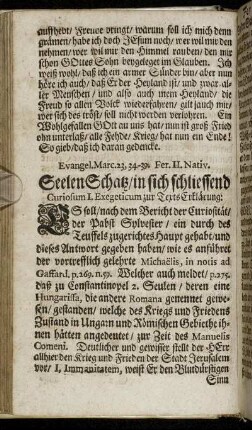 aufsteht/ Freude bringt/ warum soll ich mich denn
grämen/ habe ich doch JEsum noch/ wer wil mir den
nehmen/ wer wil mir den Himmel rauben/ den mir
schon GOttes Sohn beygeleget im Glauben. Ich
weiß wohl/ daß ich ein armer Sünder bin/ aber nun
höre ich auch/ daß Er der Heyland ist/ und zwar al-
ler Menschen/ und also auch mein Heyland/ die
Freud so allen Volck wiederfahren/ gilt jauch mir/
wer sich des tröst/ soll nicht werden verlohren. Ein
Wohlgefallen GOtt an uns hat/ nun ist groß Fried
ohn unterlaß/ alle Fehde/ Krieg/ hat nun ein Ende!
So gieb/ daß ich daran gedencke.
Evangel. Marc. 23, 34-39. Fer. II. Nativ.
Seelen Schatz/ in sich schliessend
Curiosum I. Exegeticum zur Texts Erklärung:
ES soll/ nach dem Bericht der Curiosität/
der Pabst Sylvester/ ein durch des
Teuffels zugerichtes Haupt gehabt/ und
dieses Antwort gegeben haben/ wie es anführet
der vortrefflich gelehrte Michaëlis, in notis ad
Gaffard, p. 269. n. 59. Welcher auch meldet/ p. 275.
daß zu Constantinopel 2. Seulen/ deren eine
Hungarissa, die andere Romana genennet gewe-
sen/ gestanden/ welche des Kriegs und Friedens
Zustand in Ungarn und Römischen Gebiethe ih-
nen hätten angedeutet/ zur Zeit des Manuelis
Comeni. Deutlicher und gewisser stellt der HErr
allhier den Krieg und Frieden der Stadt Jerusalem
vor/ I, Immanitatem, weist Er den Blutdürstigen
Sinn